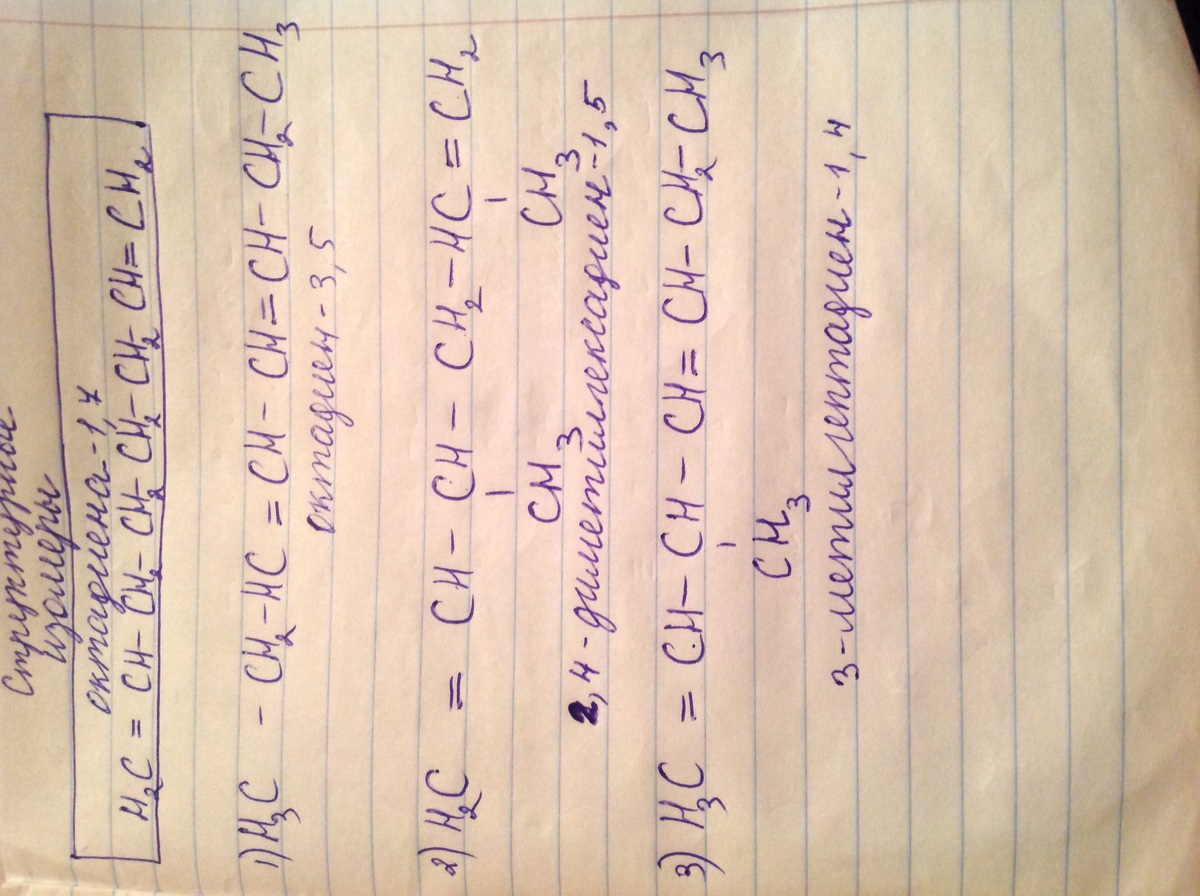 Структурные
изомеры
октадиена-1,7
H₂C = CH - CH₂ - CH₂ - CH₂ - CH₂ - CH = CH₂
1) H₃C - CH₂ - HC = CH - CH = CH - CH₂ - CH₃
октадиен-3,5
2) H₂C = CH - CH - CH₂ - HC = CH₂
CH₃ CH₃
2,4-диметилгексадиен-1,5
3) H₃C = CH - CH - CH = CH - CH₂ - CH₃
CH₃
3-метилгептадиен-1,4